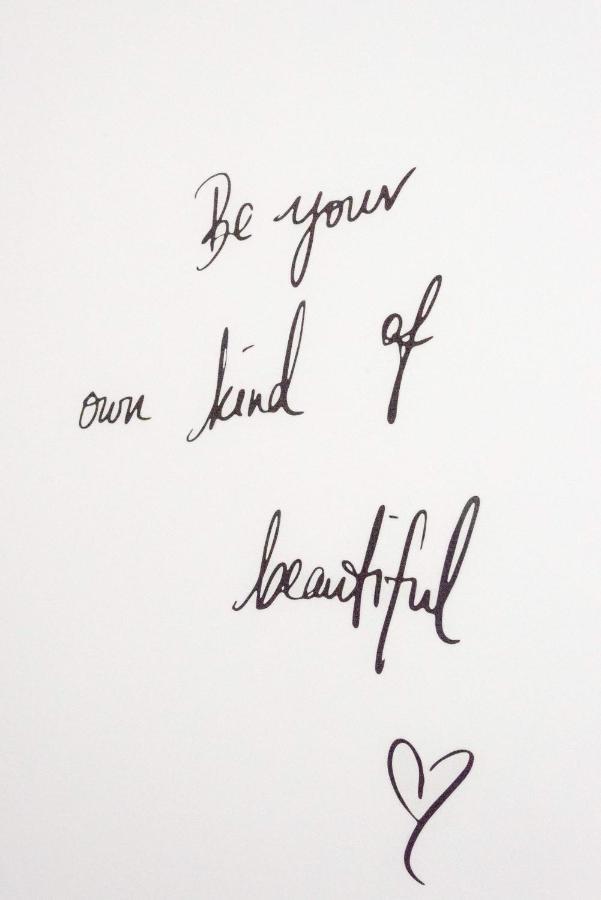 Be your
own kind of
beautiful